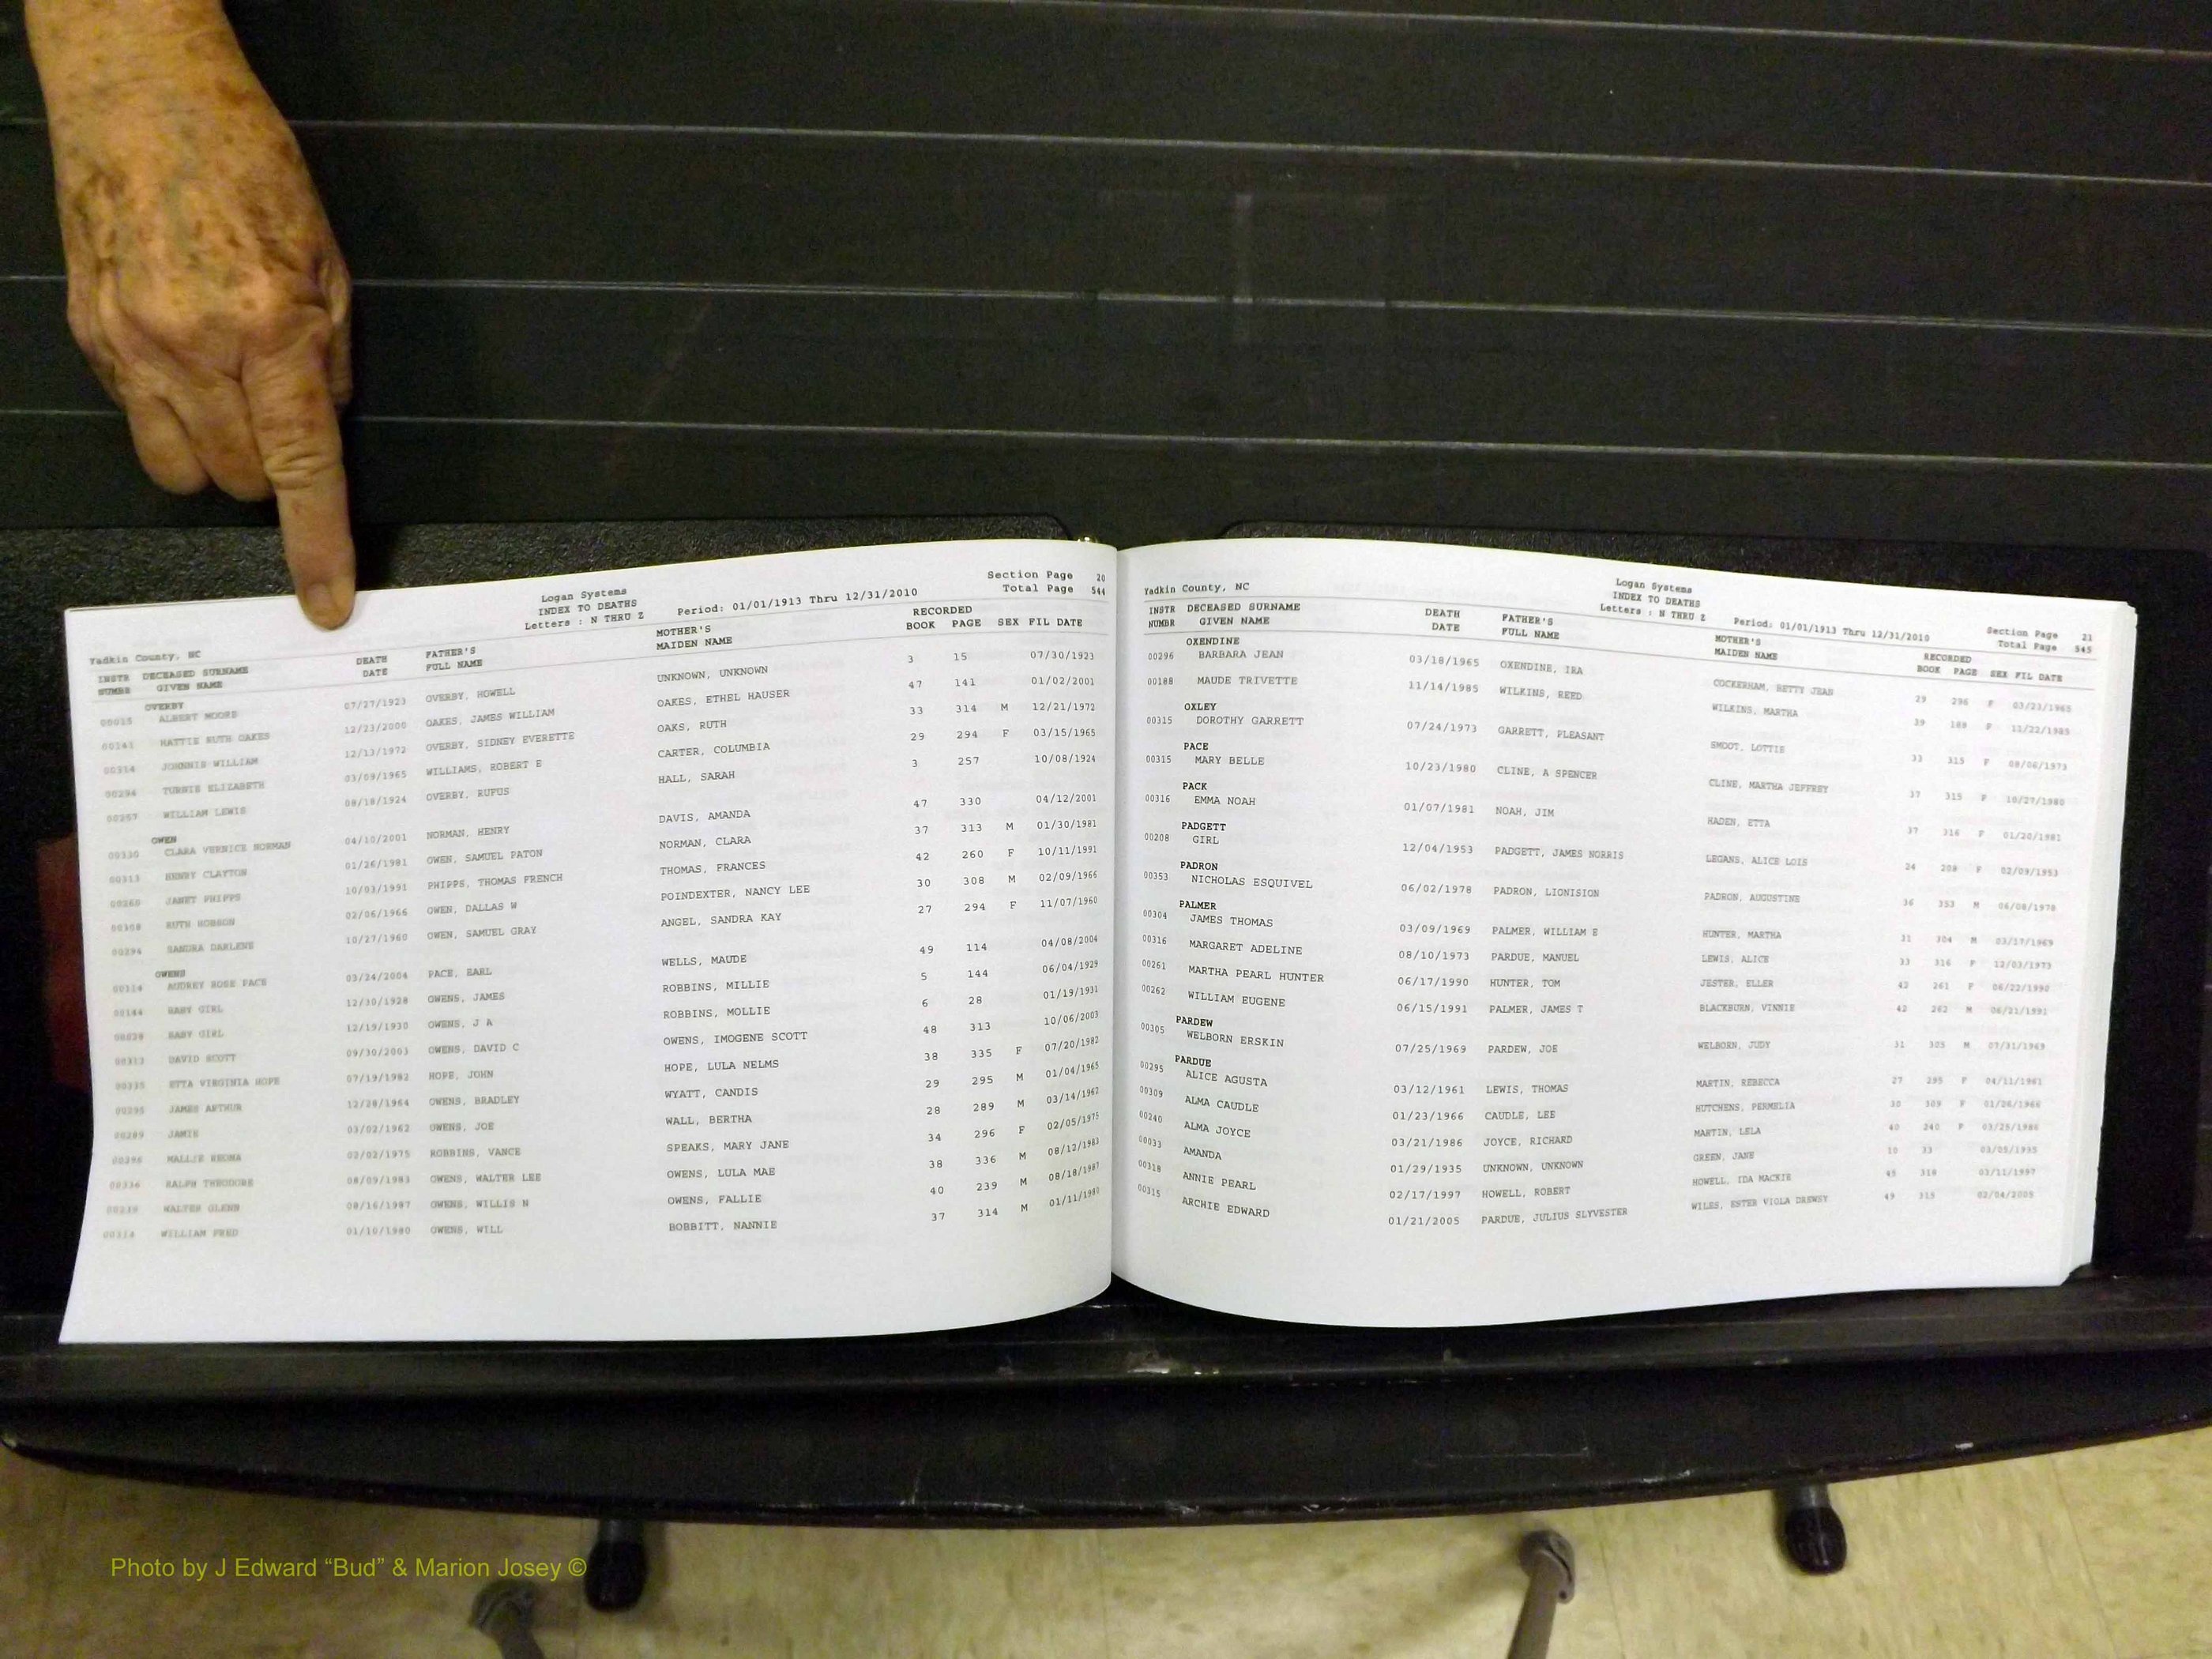 Logan Systems Section Page 20
INDEX TO DEATHS Total Page 544
Yadkin County, NC Letters : N THRU Z Period: 01/01/1913 Thru 12/31/2010
INSTR DECEASED SURNAME DEATH FATHER'S MOTHER'S RECORDED
NUMBR GIVEN NAME DATE FULL NAME MAIDEN NAME BOOK PAGE SEX FIL DATE
OVERBY
00015 ALBERT MOORE 07/27/1923 OVERBY, HOWELL UNKNOWN, UNKNOWN 3 15 07/30/1923
00141 HATTIE RUTH OAKES 12/23/2000 OAKES, JAMES WILLIAM OAKES, ETHEL HAUSER 47 141 01/02/2001
00314 JOHNNIE WILLIAM 12/13/1972 OVERBY, SIDNEY EVERETTE OAKS, RUTH 33 314 M 12/21/1972
00294 ELIZABETH 03/09/1965 WILLIAMS, ROBERT E CARTER, COLUMBIA 29 294 F 03/15/1965
00257 WILLIAM LEWIS 08/18/1924 OVERBY, RUFUS HALL, SARAH 3 257 10/08/1924
OWEN
00330 CLARA VERNICE NORMAN 04/10/2001 NORMAN, HENRY DAVIS, AMANDA 47 330 04/12/2001
00313 HENRY CLAYTON 01/26/1981 OWEN, SAMUEL PATON NORMAN, CLARA 37 313 M 01/30/1981
00260 JANET PHIPPS 10/03/1991 PHIPPS, THOMAS FRENCH THOMAS, FRANCES 42 260 F 10/11/1991
00308 RUTH HOBSON 02/06/1966 OWEN, DALLAS W POINDEXTER, NANCY LEE 30 308 M 02/09/1966
00294 SANDRA DARLENE 10/27/1960 OWEN, SAMUEL GRAY ANGEL, SANDRA KAY 27 294 F 11/07/1960
OWENS
00114 AUDREY ROSE PACE 03/24/2004 PACE, EARL WELLS, MAUDE 49 114 04/08/2004
00144 BABY GIRL 12/30/1928 OWENS, JAMES ROBBINS, MILLIE 5 144 06/04/1929
00028 BABY GIRL 12/19/1930 OWENS, J A ROBBINS, MOLLIE 6 28 01/19/1931
00313 DAVID SCOTT 09/30/2003 OWENS, DAVID C OWENS, IMOGENE SCOTT 48 313 10/06/2003
00335 ETTA VIRGINIA HOPE 07/19/1982 HOPE, JOHN HOPE, LULA NELMS 38 335 F 07/20/1982
00295 JAMES ARTHUR 12/28/1964 OWENS, BRADLEY WYATT, CANDIS 29 295 M 01/04/1965
00289 JAMIE 03/02/1962 OWENS, JOE WALL, BERTHA 28 289 M 03/14/1962
00296 MALLIE REONA 02/02/1975 ROBBINS, VANCE SPEAKS, MARY JANE 34 296 F 02/05/1975
00336 RALPH THEODORE 08/09/1983 OWENS, WALTER LEE OWENS, LULA MAE 38 336 M 08/12/1983
00239 WALTER GLENN 08/16/1987 OWENS, WILLIS N OWENS, FALLIE 40 239 M 08/18/1987
00314 WILLIAM FRED 01/10/1980 OWENS, WILL BOBBITT, NANNIE 37 314 M 01/11/1980
Logan Systems
INDEX TO DEATHS Section Page 21
Yadkin County, NC Letters : N THRU Z Period: 01/01/1913 Thru 12/31/2010 Total Page 545
INSTR DECEASED SURNAME DEATH FATHER'S MOTHER'S RECORDED
NUMBR GIVEN NAME DATE FULL NAME MAIDEN NAME BOOK PAGE SEX FIL DATE
OXENDINE
00296 BARBARA JEAN 03/18/1965 OXENDINE, IRA COCKERHAM, BETTY JEAN 29 296 F 03/23/1965
00188 MAUDE TRIVETTE 11/14/1985 WILKINS, REED WILKINS, MARTHA 39 188 F 11/22/1985
OXLEY
00315 DOROTHY GARRETT 07/24/1973 GARRETT, PLEASANT SMOOT, LOTTIE 33 315 F 08/06/1973
PACE
00315 MARY BELLE 10/23/1980 CLINE, A SPENCER CLINE, MARTHA JEFFREY 37 315 F 10/27/1980
PACK
00316 EMMA NOAH 01/07/1981 NOAH, JIM HADEN, ETTA 37 316 F 01/20/1981
PADGETT
00208 GIRL 12/04/1953 PADGETT, JAMES NORRIS LEGANS, ALICE LOIS 24 208 F 02/09/1953
PADRON
00353 NICHOLAS ESQUIVEL 06/02/1978 PADRON, LIONISION PADRON, AUGUSTINE 36 353 M 06/08/1978
PALMER
00304 JAMES THOMAS 03/09/1969 PALMER, WILLIAM E HUNTER, MARTHA 31 304 M 03/17/1969
00316 MARGARET ADELINE 08/10/1973 PARDUE, MANUEL LEWIS, ALICE 33 316 F 12/03/1973
00261 MARTHA PEARL HUNTER 06/17/1990 HUNTER, TOM JESTER, ELLER 42 261 F 06/22/1990
00262 WILLIAM EUGENE 06/15/1991 PALMER, JAMES T BLACKBURN, VINNIE 42 262 M 06/21/1991
PARDEW
00305 WELBORN ERSKIN 07/25/1969 PARDEW, JOE WELBORN, JUDY 31 305 M 07/31/1969
PARDUE
00295 ALICE AGUSTA 03/12/1961 LEWIS, THOMAS MARTIN, REBECCA 27 295 F 04/11/1961
00309 ALMA CAUDLE 01/23/1966 CAUDLE, LEE HUTCHENS, PERMELIA 30 309 F 01/26/1966
00240 ALMA JOYCE 03/21/1986 JOYCE, RICHARD MARTIN, LELA 40 240 F 03/25/1986
00033 AMANDA 01/29/1935 UNKNOWN, UNKNOWN GREEN, JANE 10 33 03/05/1935
00318 ANNIE PEARL 02/17/1997 HOWELL, ROBERT HOWELL, IDA MACKIE 45 318 03/11/1997
00315 ARCHIE EDWARD 01/21/2005 PARDUE, JULIUS SLYVESTER WILES, ESTER VIOLA DREWSY 49 315 02/04/2005
Photo by J Edward “Bud” & Marion Josey ©